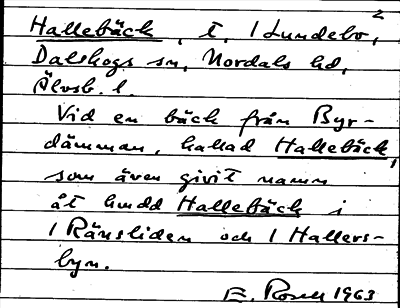 2
Hallebäck, t. 1 Lundebo,
Dalskogs sn, Nordals hd,
Älvsb. l.
Vid en bäck från Byr-
dämman, kallad Hallebäck,
som även givit namn
åt hudd Hallebäck i
1 Ränsliden och 1 Hallers-
byn.
E. Rosell 1963